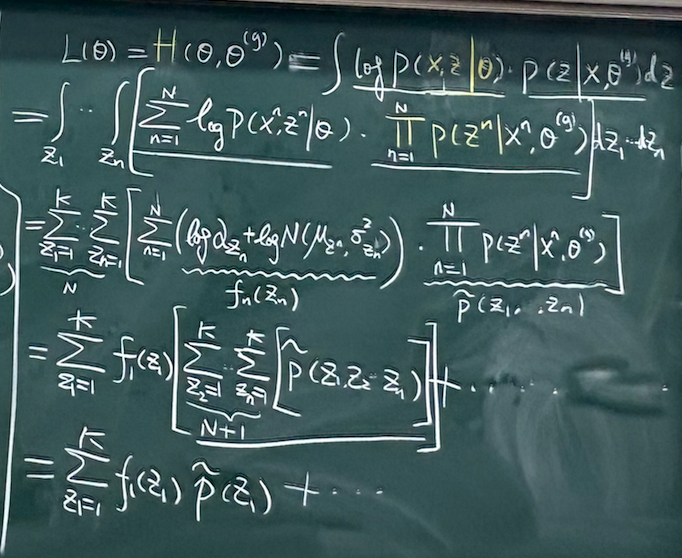 L(θ) = H(θ, θ^(g)) = ∫ log P(x,z|θ) · P(z|x,θ^(g)) dz
= ∫_{z_1} ·· ∫_{z_n} [ Σ_{n=1}^{N} log P(x^n, z^n|θ) · Π_{n=1}^{N} P(z^n|x^n, θ^(g)) ] dz_1 ·· dz_n
= Σ_{z_1=1}^{K} ·· Σ_{z_n=1}^{K} [ Σ_{n=1}^{N} (log α_{z_n} + log N(μ_{z^n}, σ²_{z_n})) · Π_{n=1}^{N} P(z^n|x^n, θ^(g)) ]
N f_n(z_n) p̃(z_1, ·, z_n)
= Σ_{z_1=1}^{K} f_1(z_1) [ Σ_{z_2=1}^{K} ·· Σ_{z_n=1}^{K} [ p̃(z_1 z_2 ·· z_n) ] ] + ······
N+1
= Σ_{z_1=1}^{K} f_1(z_1) p̃(z_1) + ···